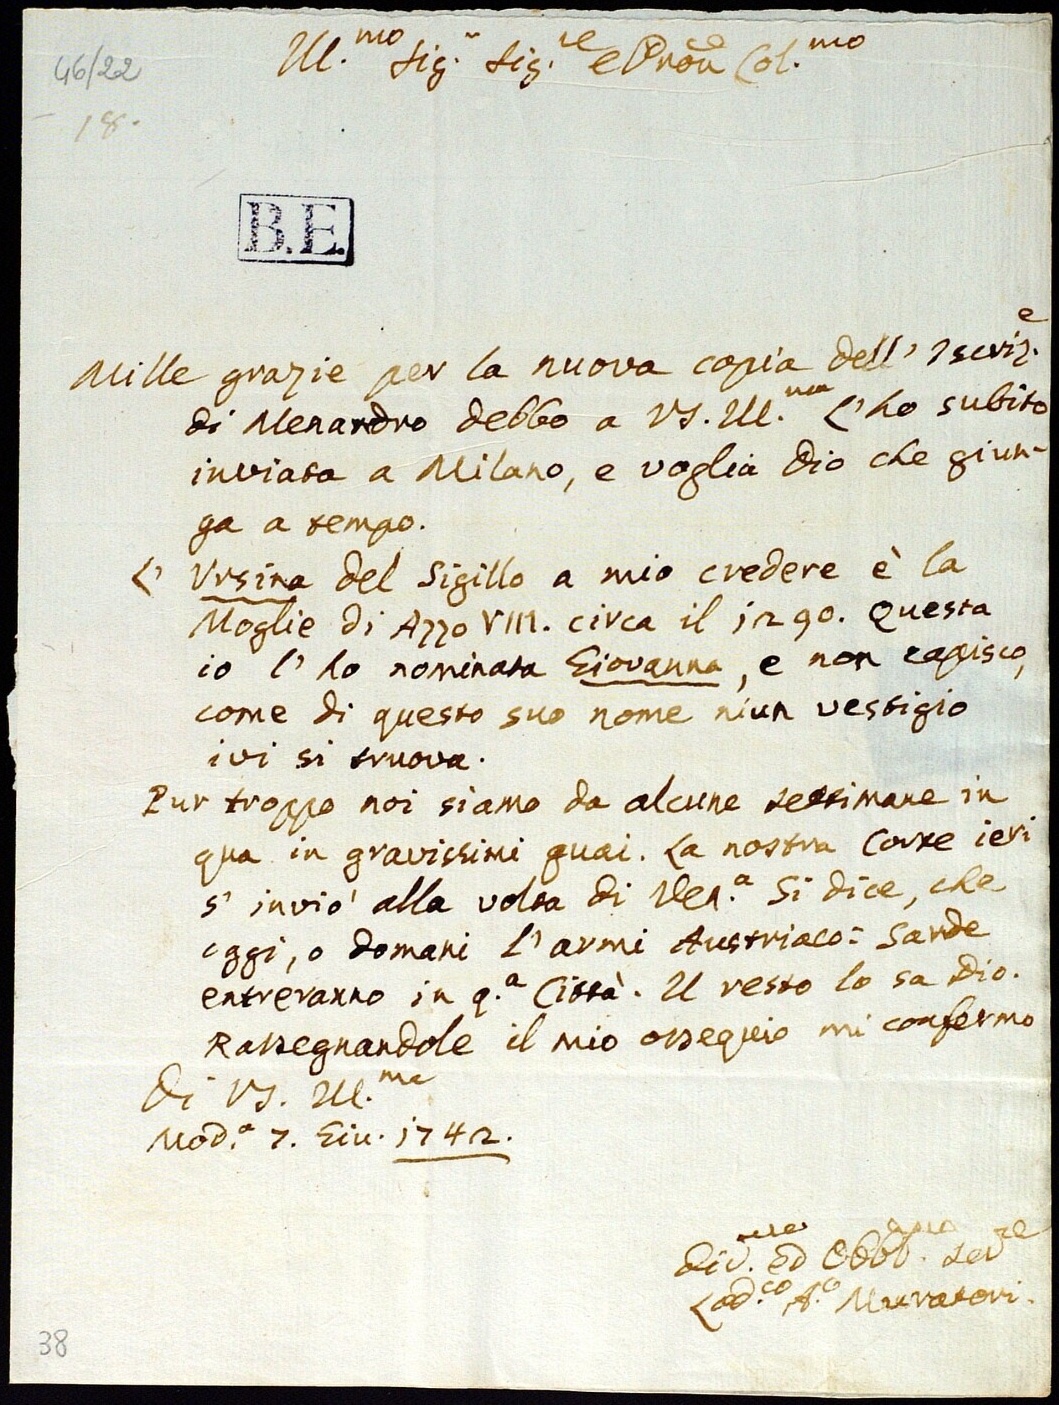 46/22
18.
Ill.mo Sig.r Sig.re e Pron Col.mo
B.E.
Mille grazie per la nuova copia dell' Iscriz.e
di Menandro debbo a VS. Ill.ma L' ho subito
inviata a Milano, e voglia Dio che giun-
ga a tempo.
L' Ursina del Sigillo a mio credere è la
Moglie di Azzo VIII. circa il 1290. Questa
io l' ho nominata Giovanna, e non capisco,
come di questo suo nome niun vestigio
ivi si truova.
Pur troppo noi siamo da alcune settimane in
qua in gravissimi guai. La nostra Corte ieri
s' inviò alla volta di Ven.a Si dice, che
oggi, o domani l' armi Austriaco=Sarde
entreranno in q.a Città. Il resto lo sa Dio.
Rassegnandole il mio ossequio mi confermo
Di VS. Ill.ma
Mod.a 7. Giu. 1742.
Div. ed Obbl. Ser.re
Lod.co A.o Muratori.
38